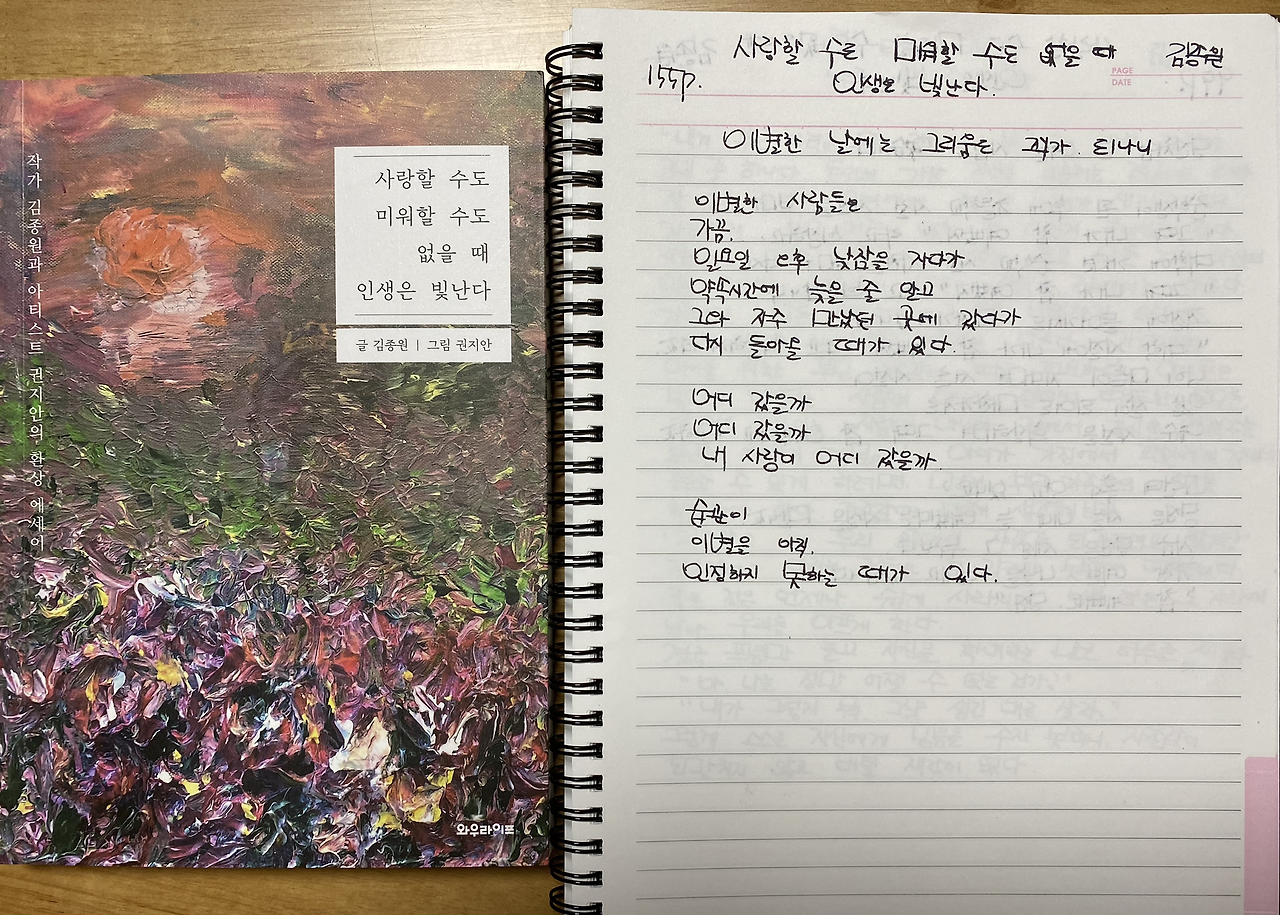 작가 김종원과 아티스트 권지안의 환상 에세이
사랑할 수도
미워할 수도
없을 때
인생은 빛난다
글 김종원 | 그림 권지안
와우라이프
사랑할 수도 미워할 수도 없을 때 김종원
PAGE
DATE
155p. 인생은 빛난다.
이별한 날에는 그리움도 력가 되나니
이별한 사람들은
가끔,
일요일 오후 낮잠을 자다가
약속시간에 늦은 줄 알고
그와 자주 만났던 곳에 갔다가
다시 돌아올 때가 있다.
어디 갔을까
어디 갔을까
내 사랑이 어디 갔을까
습관이
이별을 아직,
인정하지 못하는 때가 있다.